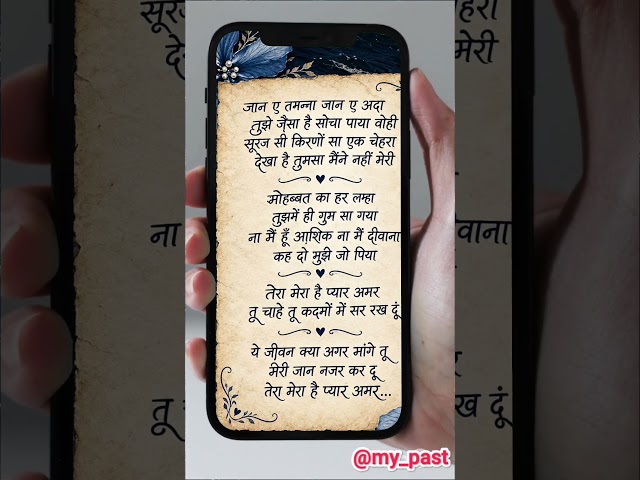 जान ए तमन्ना जान ए अदा
तुझे जैसा है सोचा पाया वोही
सूरज सी किरणों सा एक चेहरा
देखा है तुमसा मैंने नहीं मेरी
मोहब्बत का हर लम्हा
तुझमें ही गुम सा गया
ना मैं हूँ आशिक ना मैं दीवाना
कह दो मुझे जो पिया
तेरा मेरा है प्यार अमर
तू चाहे तू कदमों में सर रख दूं
ये जीवन क्या अगर मांगे तू
मेरी जान नजर कर दू
तेरा मेरा है प्यार अमर...
@my_past